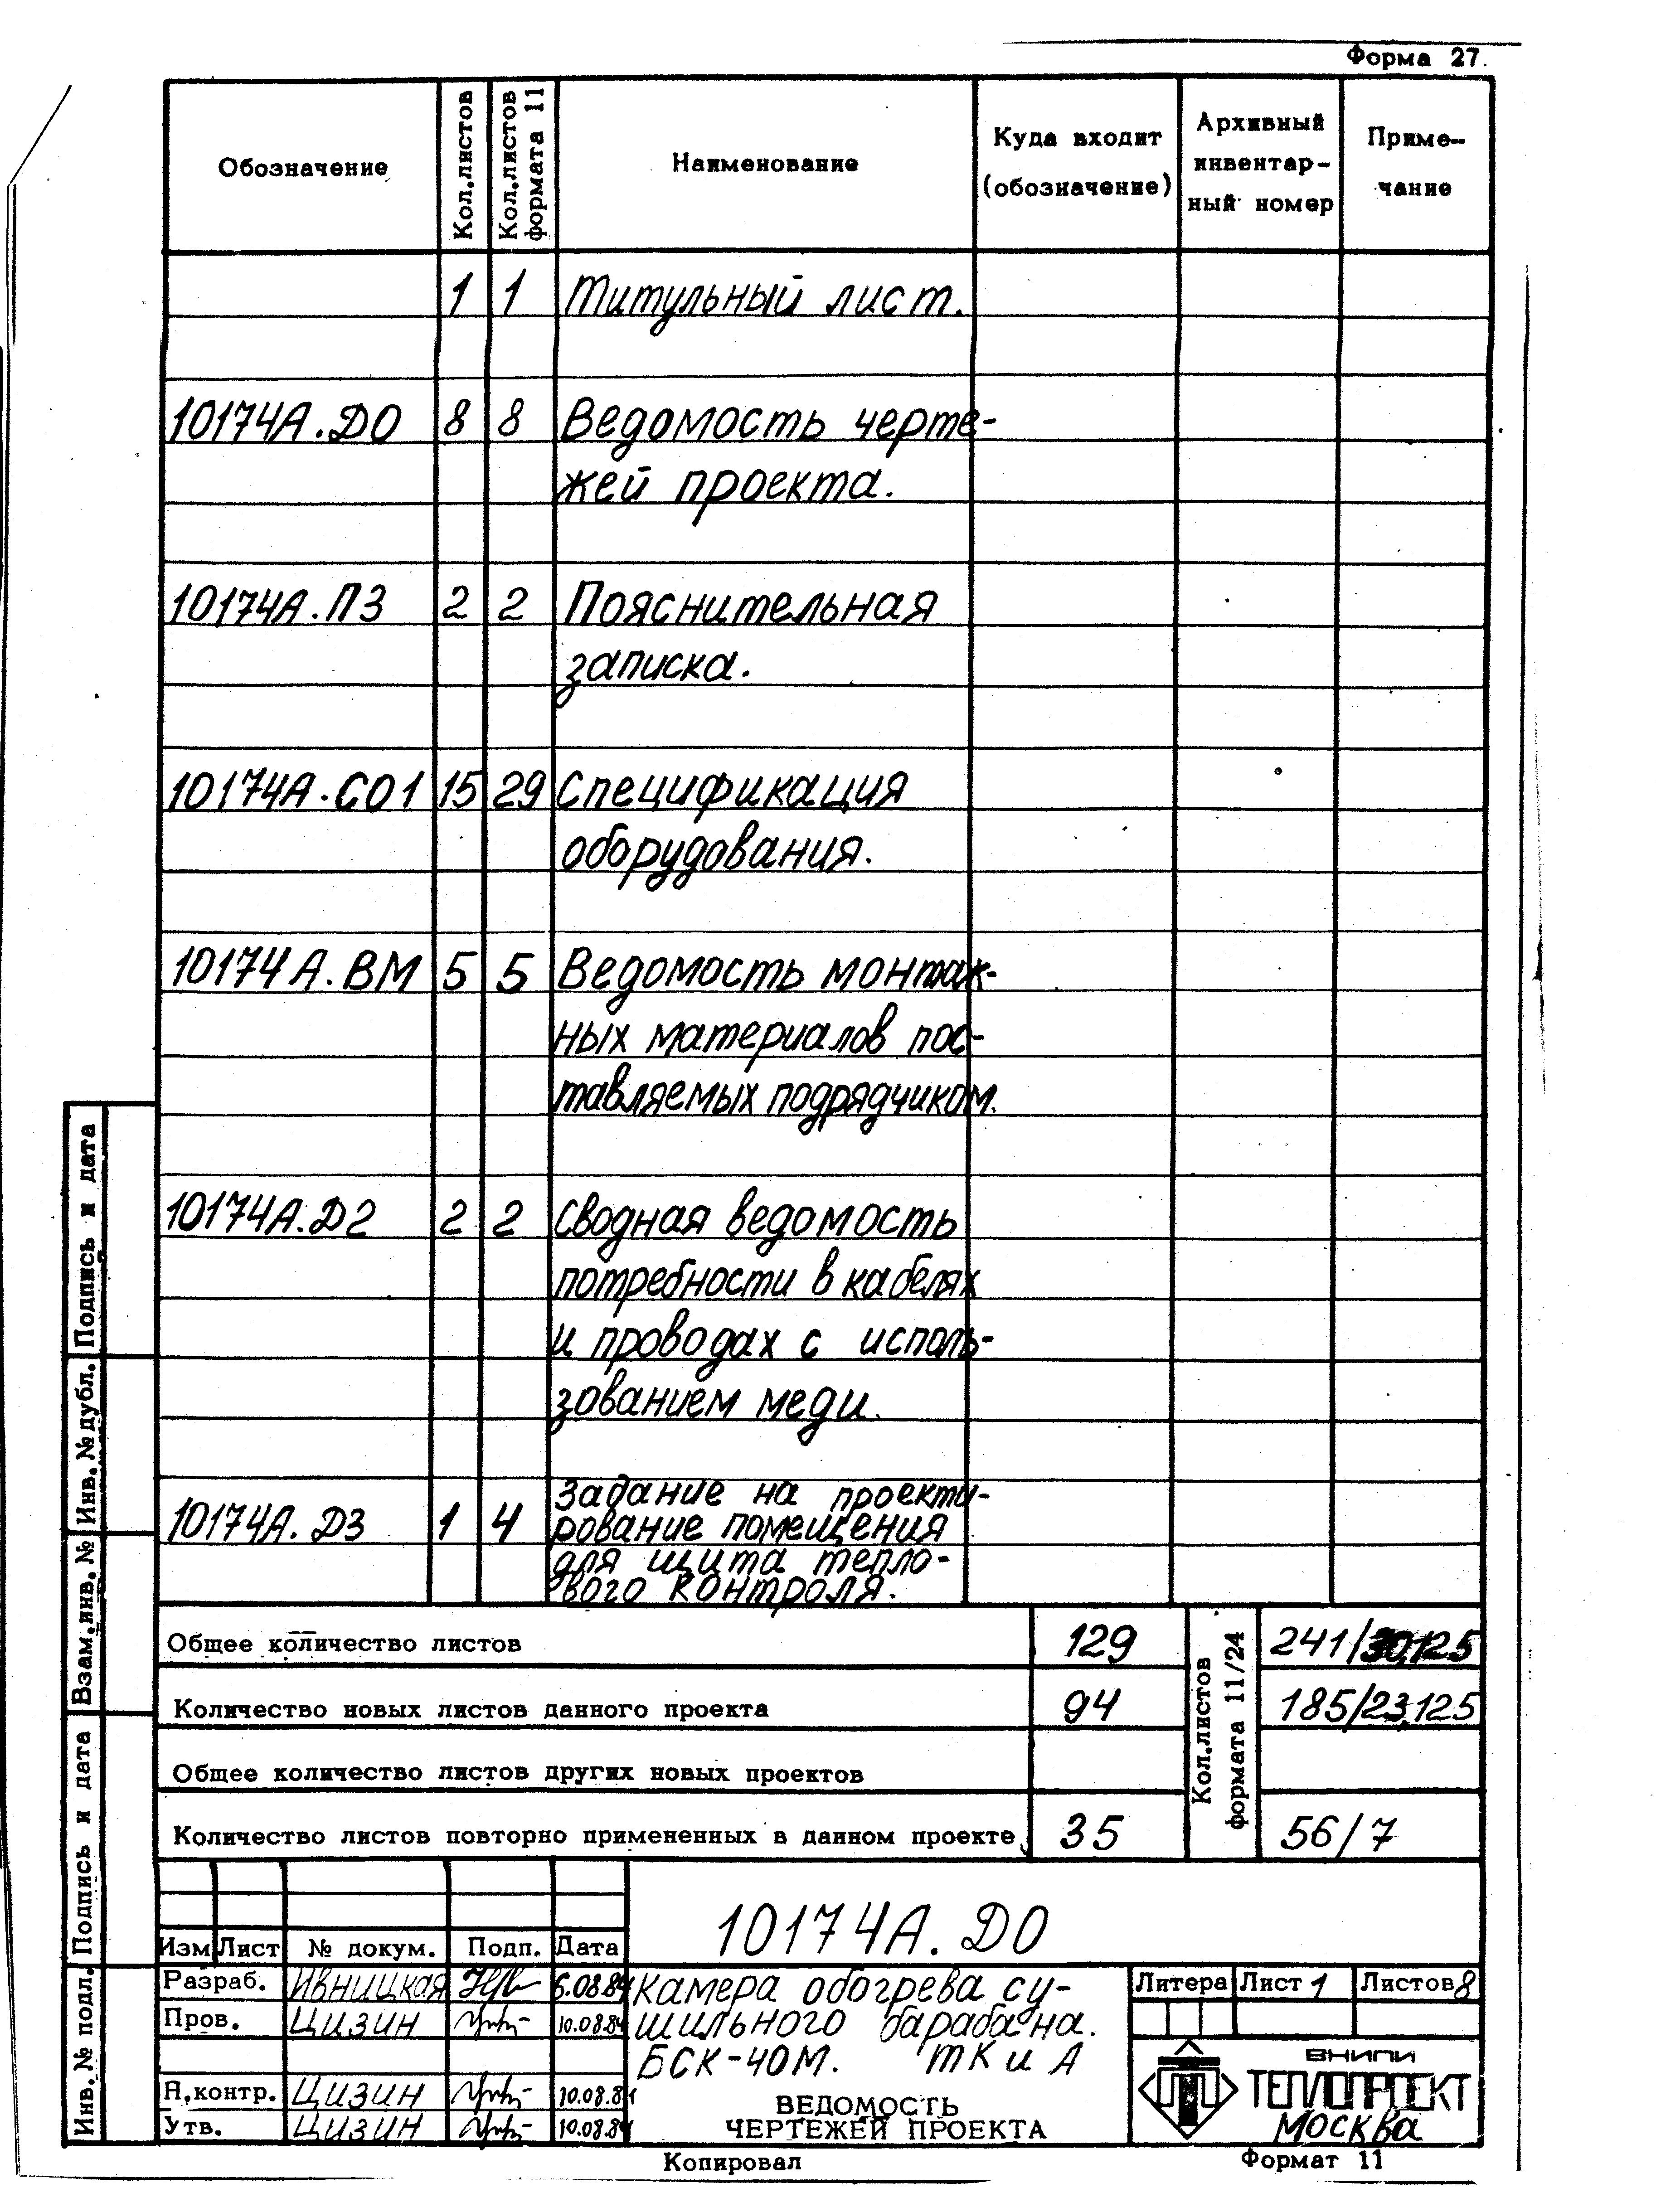 Форма 27.
Обозначение
Кол.листов
Кол.листов
формата 11
Наименование
Куда входит
(обозначение)
Архивный
инвентар-
ный номер
Приме-
чание
1 1 Титульный лист.
10174А.ДО 8 8 Ведомость черте-
жей проекта.
10174А.ПЗ 2 2 Пояснительная
записка.
10174А.СО1 15 29 Спецификация
оборудования.
10174А.ВМ 5 5 Ведомость монтаж-
ных материалов пос-
тавляемых подрядчиком.
10174А.Д2 2 2 Сводная ведомость
потребности в кабелях
и проводах с исполь-
зованием меди.
Задание на проекти-
10174А.Д3 1 4 рование помещения
для щита тепло-
вого контроля.
Общее количество листов 129 241/30,125
Количество новых листов данного проекта 94 185/23,125
Общее количество листов других новых проектов
Количество листов повторно примененных в данном проекте 35 56/7
Кол.листов
формата 11/24
10174А.ДО
Изм Лист № докум. Подп. Дата
Разраб. Ивницкая 6.08.84
Пров. Цизин 10.08.84
Н.контр. Цизин 10.08.84
Утв. Цизин 10.08.84
Камера обогрева су-
шильного барабана.
БСК-40М. ТК и А
ВЕДОМОСТЬ
ЧЕРТЕЖЕЙ ПРОЕКТА
Литера Лист 1 Листов 8
ВНИПИ
ТЕПЛОПРОЕКТ
Москва
Копировал
Формат 11
Подпись и дата
Инв. № дубл.
Взам.инв. №
Подпись и дата
Инв. № подл.